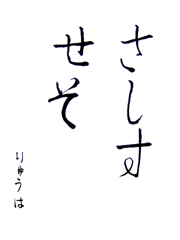 さしす
せそ
りゅうは